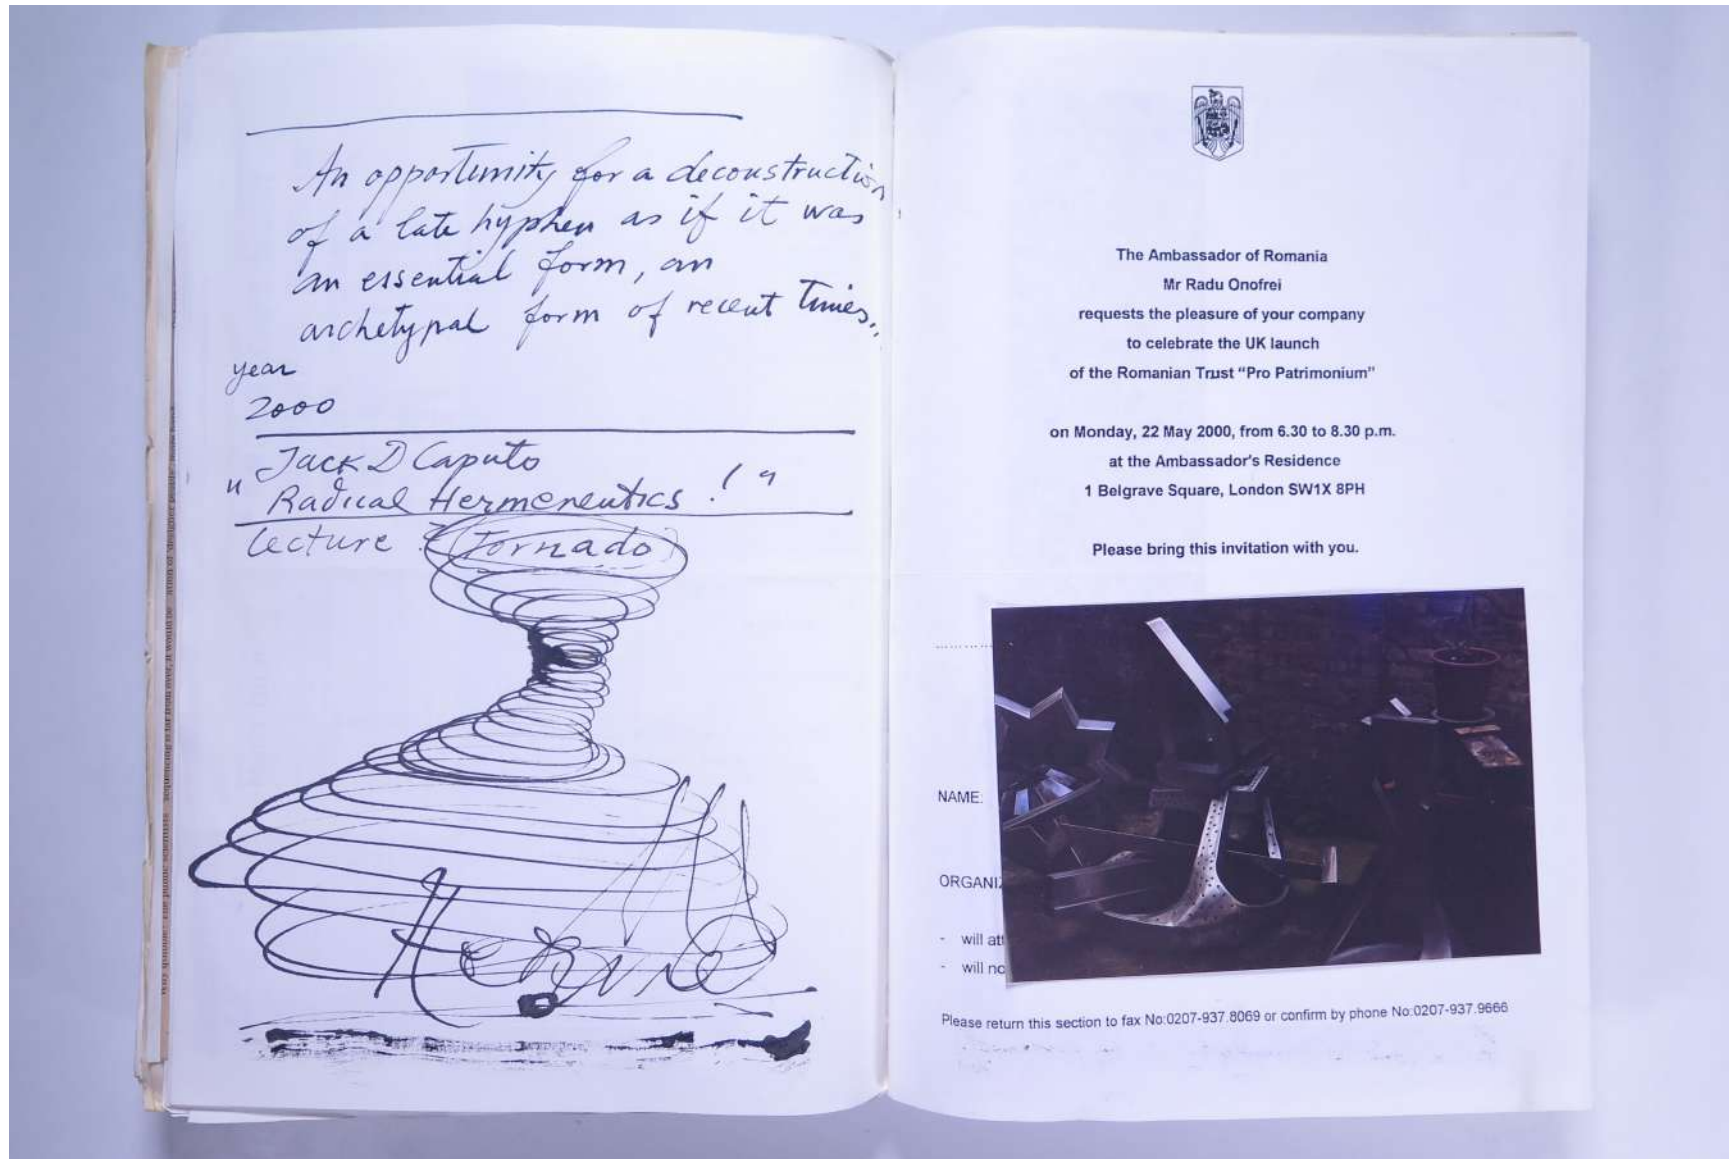 An opportunity for a deconstruction
of a late hyphen as if it was
an essential form, an
archetypal form of recent times..
year
2000
"Jack D Caputo
Radical Hermeneutics !"
lecture : Tornado
The Ambassador of Romania
Mr Radu Onofrei
requests the pleasure of your company
to celebrate the UK launch
of the Romanian Trust “Pro Patrimonium”
on Monday, 22 May 2000, from 6.30 to 8.30 p.m.
at the Ambassador's Residence
1 Belgrave Square, London SW1X 8PH
Please bring this invitation with you.
NAME:
ORGANIZ
- will att
- will no
Please return this section to fax No:0207-937.8069 or confirm by phone No:0207-937.9666